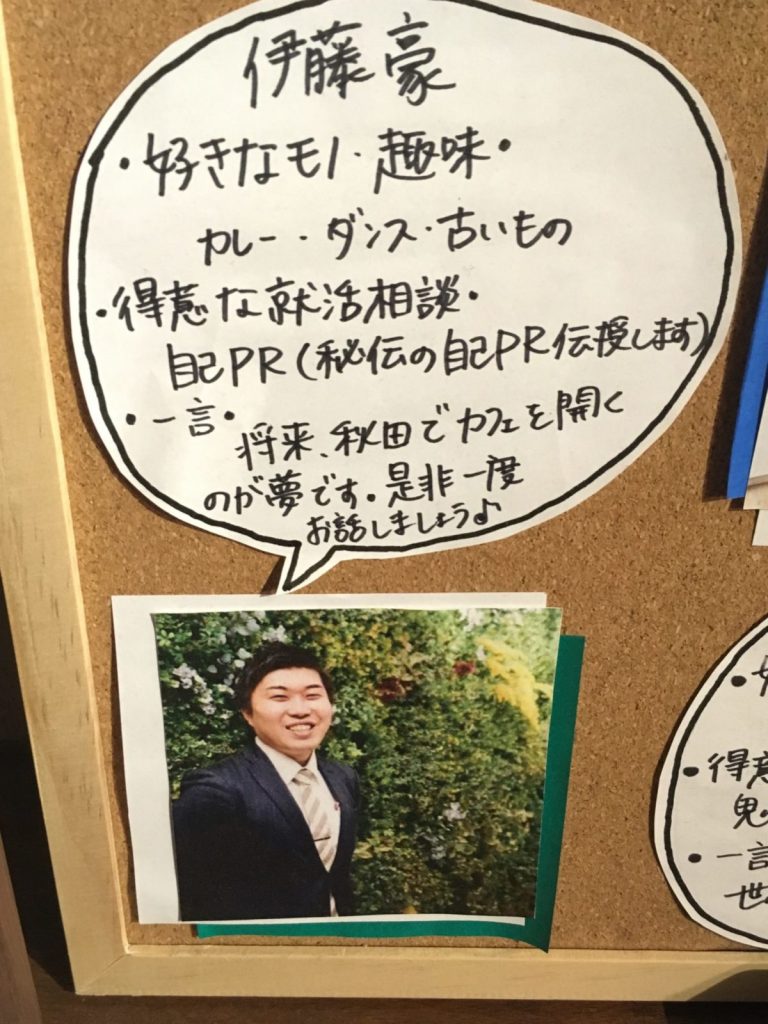 伊藤豪
・好きなモノ・趣味・
カレー・ダンス・古いもの
・得意な就活相談・
自己PR(秘伝の自己PR伝授します)
・一言・
将来、秋田でカフェを開く
のが夢です。是非一度
お話しましょう♪
・得意
・一言